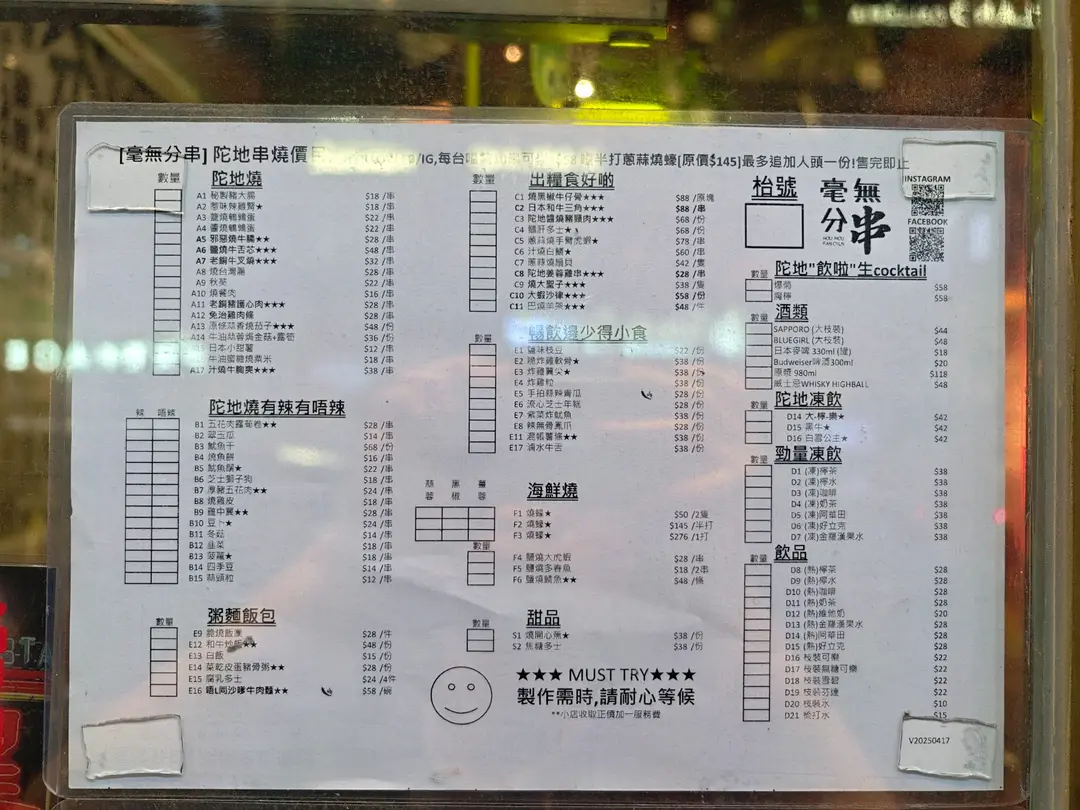 [毫無分串] 陀地串燒價目
/IG,每台
半打蔥蒜燒蠔[原價$145]最多追加人頭一份!售完即止
陀地燒
A1 秘製豬大腸 $18 /串
A2 惹味辣雞腎★ $18 /串
A3 鹽燒鵪鶉蛋 $22 /串
A4 醬燒鵪鶉蛋 $22 /串
A5 邪惡燒牛腸★★ $28 /串
A6 鹽燒牛舌芯★★★ $48 /串
A7 老鋼牛叉燒★★★ $32 /串
A8 燒台灣腸 $28 /串
A9 秋葵 $22 /串
A10 燒餐肉 $16 /串
A11 老鋼豬護心肉★★★ $28 /串
A12 免治雞肉條 $28 /串
A13 原條蒜香燒茄子★★★ $48 /份
A14 牛油蒜蓉焗金菇+露筍 $36 /份
日本小甜薯 $12 /串
牛油蜜糖燒粟米 $18 /串
A17 汁燒牛胸爽★★★ $38 /串
辣 唔辣
陀地燒有辣有唔辣
B1 五花肉露筍卷★★ $28 /串
B2 翠玉瓜 $14 /串
B3 魷魚干 $68 /份
B4 燒魚餅 $16 /串
B5 魷魚鬚★ $22 /串
B6 芝士獅子狗 $18 /串
B7 厚豬五花肉★★ $24 /串
B8 燒雞皮 $18 /串
B9 雞中翼★★ $28 /串
B10 豆卜★ $24 /串
B11 冬菇 $14 /串
B12 韭菜 $18 /串
B13 菠蘿★ $18 /串
B14 四季豆 $14 /串
B15 蒜頭粒 $12 /串
數量
粥麵飯包
E9 脆燒飯團 $28 /件
E12 和牛炒飯★★ $48 /份
E13 白飯 $15 /份
E14 菜乾皮蛋豬骨粥★★ $28 /份
E15 腐乳多士 $24 /4件
E16 唔L同沙嗲牛肉麵★★ $58 /碗
數量
出糧食好啲
C1 燒黑椒牛仔骨★★★ $88 /原塊
C2 日本和牛三角★★★ $88 /串
C3 陀地醬燒豬頸肉★★★ $68 /份
C4 鵝肝多士★ $68 /份
C5 蔥蒜燒手臂虎蝦★ $78 /串
C6 汁燒白鱔★ $60 /串
C7 蔥蒜燒扇貝 $42 /隻
C8 陀地姜蓉雞串★★★ $28 /串
C9 燒大墨子★★★ $38 /隻
C10 大蝦沙律★★★ $58 /份
C11 巴燒羊架★★★ $48 /件
暢飲邊少得小食
數量
E1 鹽味枝豆 $22 /份
E2 脆炸雞軟骨★ $38 /份
E3 炸雞翼尖★ $38 /份
E4 炸雞粒 $38 /份
E5 手拍蒜辣青瓜 $28 /份
E6 流心芝士年糕 $28 /份
E7 紫菜炸魷魚 $38 /份
E8 辣無骨鳳爪 $28 /份
E11 混帳薯條★★ $38 /份
E17 滷水牛舌 $38 /份
蒜蓉 黑椒 薑蓉
海鮮燒
F1 燒蠔★ $50 /2隻
F2 燒蠔★ $145 /半打
F3 燒蠔★ $276 /1打
數量
F4 鹽燒大虎蝦 $28 /串
F5 鹽燒多春魚 $18 /2串
F6 鹽燒鯖魚★★ $48 /條
數量
甜品
S1 燒開心蕉★ $38 /份
S2 焦糖多士 $38 /份
★★★ MUST TRY★★★
製作需時,請耐心等候
**小店收取正價加一服務費
枱號
毫無分串
HOU MOU FAN CHUN
INSTAGRAM
FACEBOOK
數量
陀地"飲啦"生cocktail
爆菊 $58
魔檸 $58
數量
酒類
SAPPORO (大枝裝) $44
BLUEGIRL (大枝裝) $48
日本麥啤 330ml (罐) $18
Budweiser啤酒300ml $20
原漿 980ml $118
威士忌WHISKY HIGHBALL $48
數量
陀地凍飲
D14 大-檸-樂★ $42
D15 黑牛★ $42
D16 白雲公主★ $42
數量
勁量凍飲
D1 (凍)檸茶 $38
D2 (凍)檸水 $38
D3 (凍)咖啡 $38
D4 (凍)奶茶 $38
D5 (凍)阿華田 $38
D6 (凍)好立克 $38
D7 (凍)金羅漢果水 $38
數量
飲品
D8 (熱)檸茶 $28
D9 (熱)檸水 $28
D10 (熱)咖啡 $28
D11 (熱)奶茶 $28
D12 (熱)維他奶 $20
D13 (熱)金羅漢果水 $28
D14 (熱)阿華田 $28
D15 (熱)好立克 $28
D16 枝裝可樂 $22
D17 枝裝無糖可樂 $22
D18 枝裝雪碧 $22
D19 枝裝芬達 $22
D20 枝裝水 $10
D21 梳打水 $15
V20250417